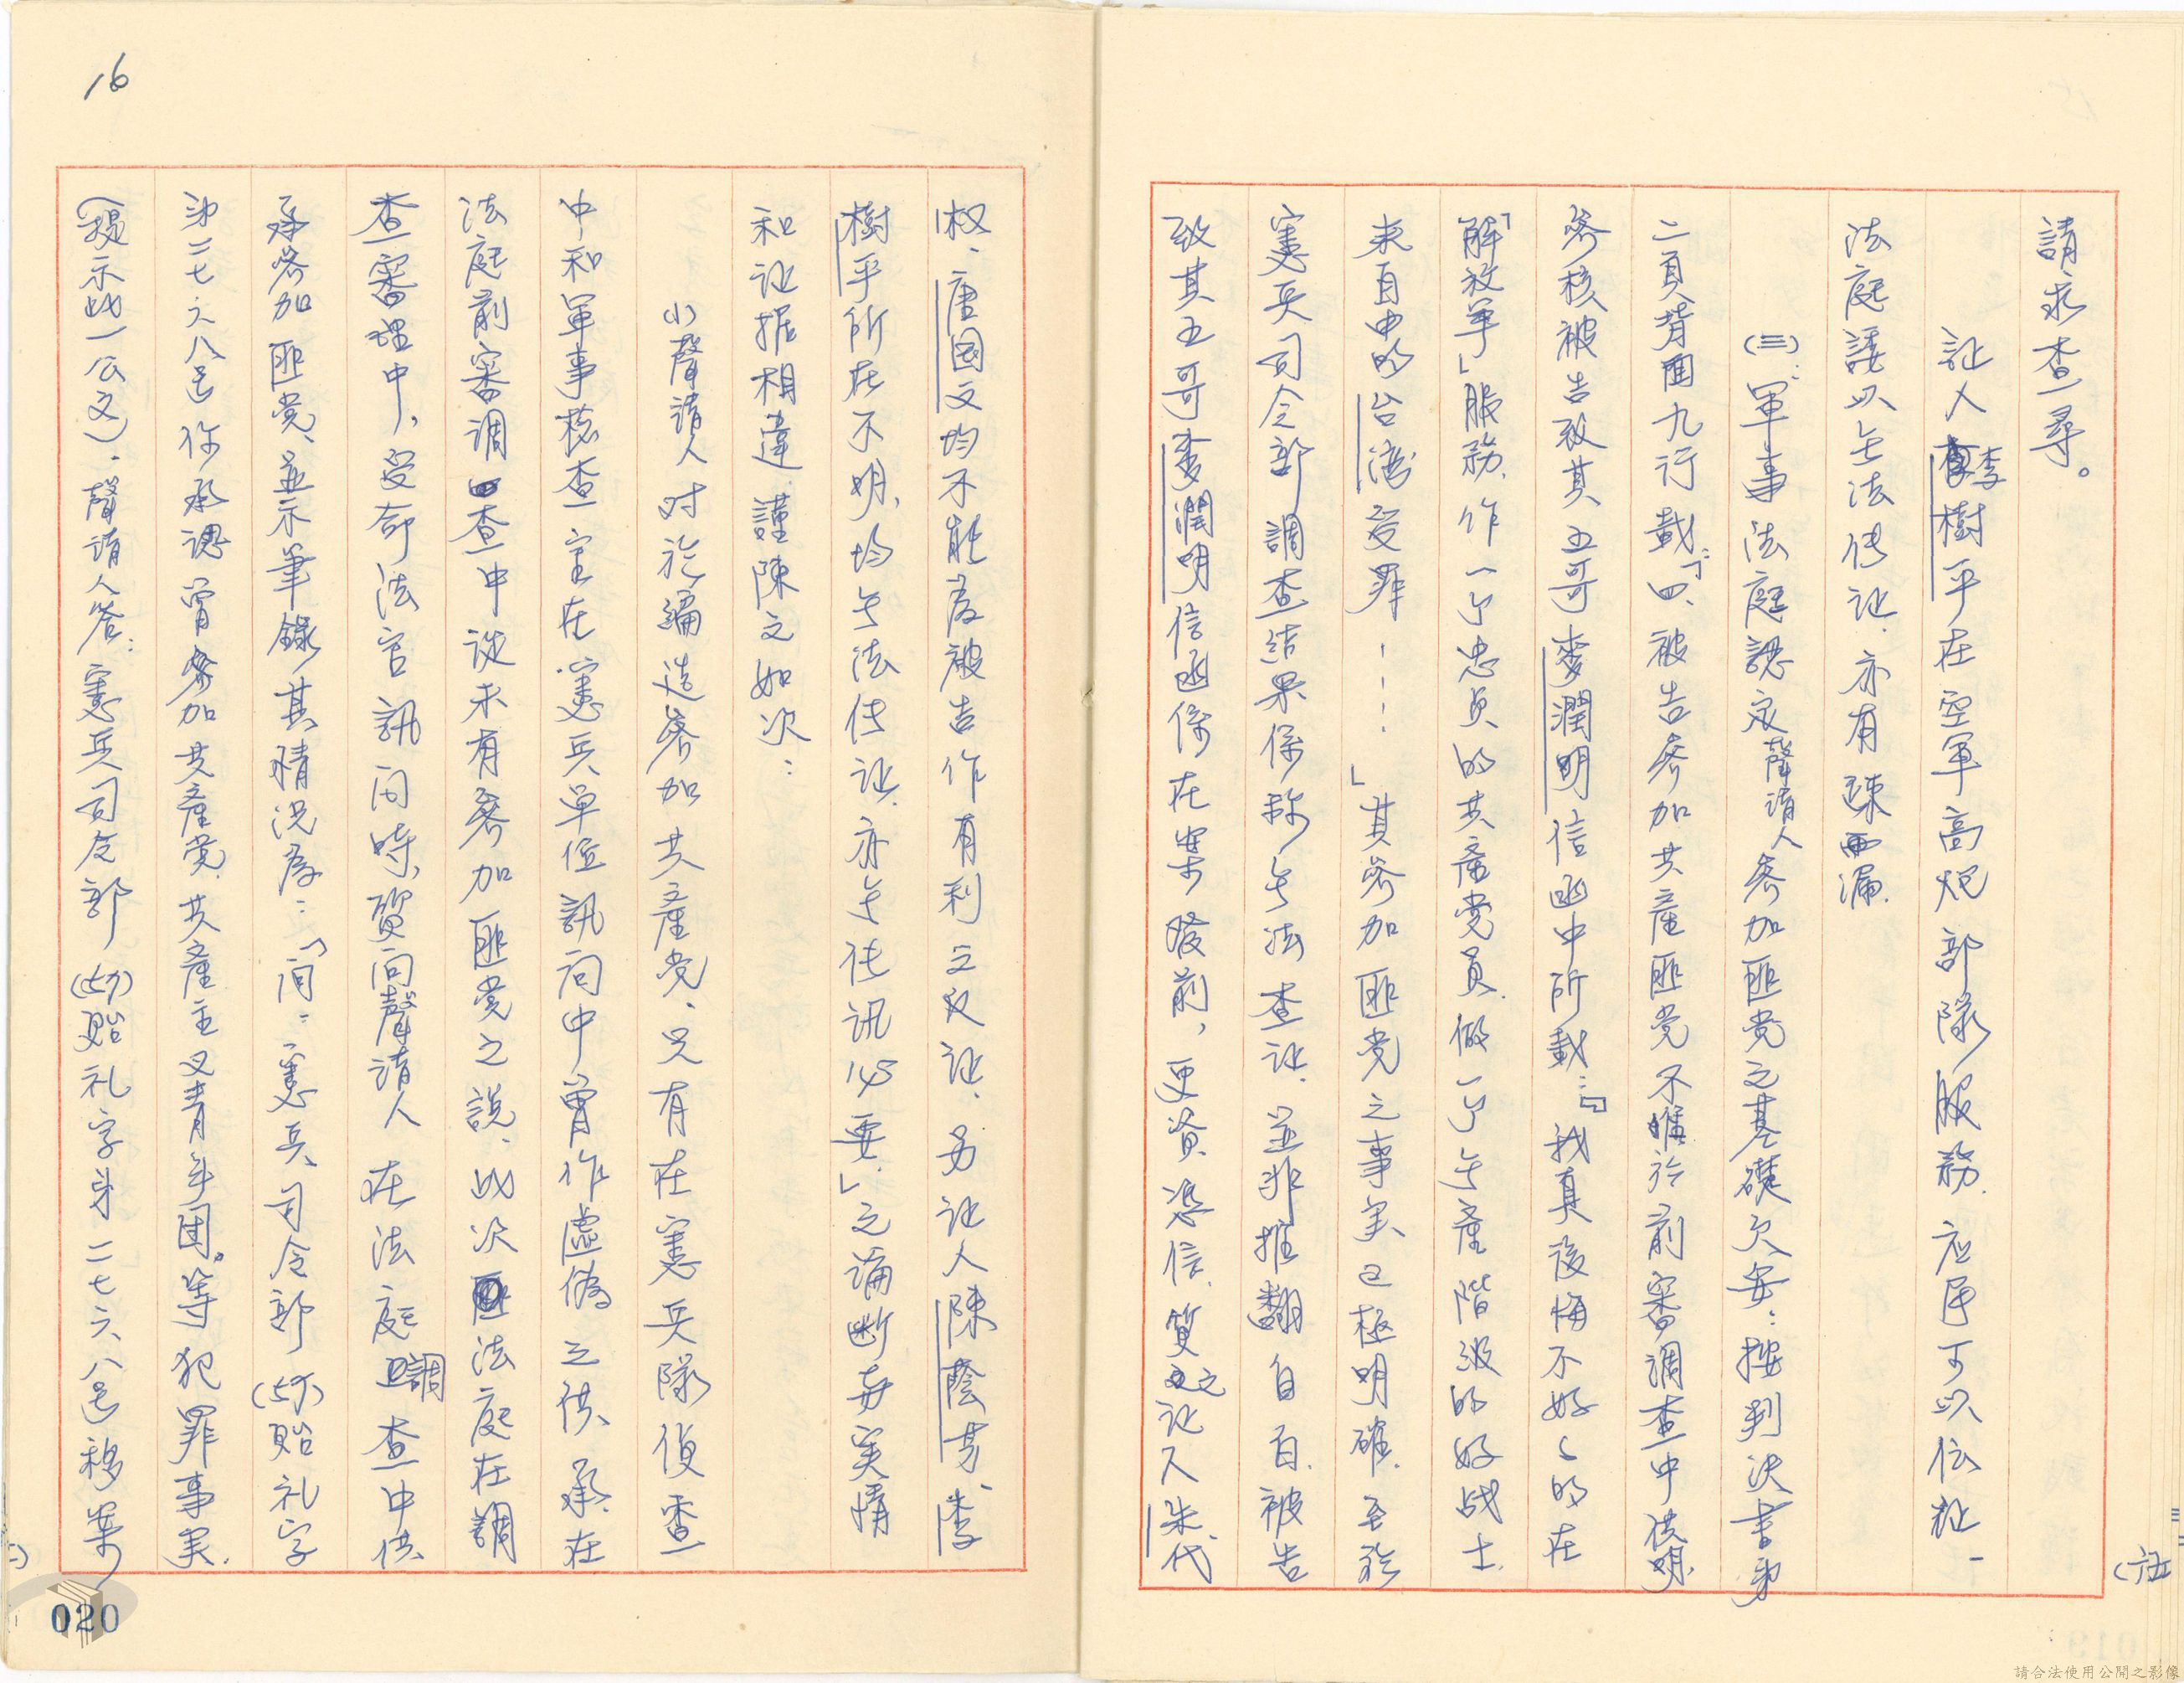 請求查尋。
証人李樹平在空軍高炮部隊服務、应是可以传証、一
法庭諉以無法传証、亦有疎漏。
(三)：軍事法庭認定聲請人參加匪党之基礎欠妥：按判决書第
二頁背面九行載：「四、被告參加共產匪党不惟於前審調查中供明、
參核被告致其五哥麥潤明信函中所載：『我真後悔不好々的在
「解放軍」服務、作一个忠貞的共產党員、做一个無產階級的好战士、
来自中的台湾受罪－－－－」其參加匪党之事実已極明確、至於
憲兵司令部調查結果係称無法查証、並非推翻自白、被告
致其五哥麥潤明信函係在案發前，更資憑信、質之証人朱代
权、唐国文均不能为被告作有利之反証、另証人陳蔭芳、李
樹平所在不明、均無法传証、亦無传訊必要、」之論断與実情
和証据相違、謹陳之如次：
(1)聲請人对於編造參加共產党、只有在憲兵隊偵查
中和軍事檢查官在憲兵单位訊问中曾作虛偽之供承、在
法庭前審調查中並未有參加匪党之說、此次法庭在調
查審理中，受命法官訊问時、質问聲請人在法庭調查中供
承參加匪党、並示筆錄其情況为：「问：憲兵司令部(57)貽礼字
第二七六八号你承認曾參加共產党、共產主义青年团。等犯罪事実、
(提示此一公文)、聲請人答：憲兵司令部(57)貽礼字第二七六八号移案
16
020
請合法使用公開之影像